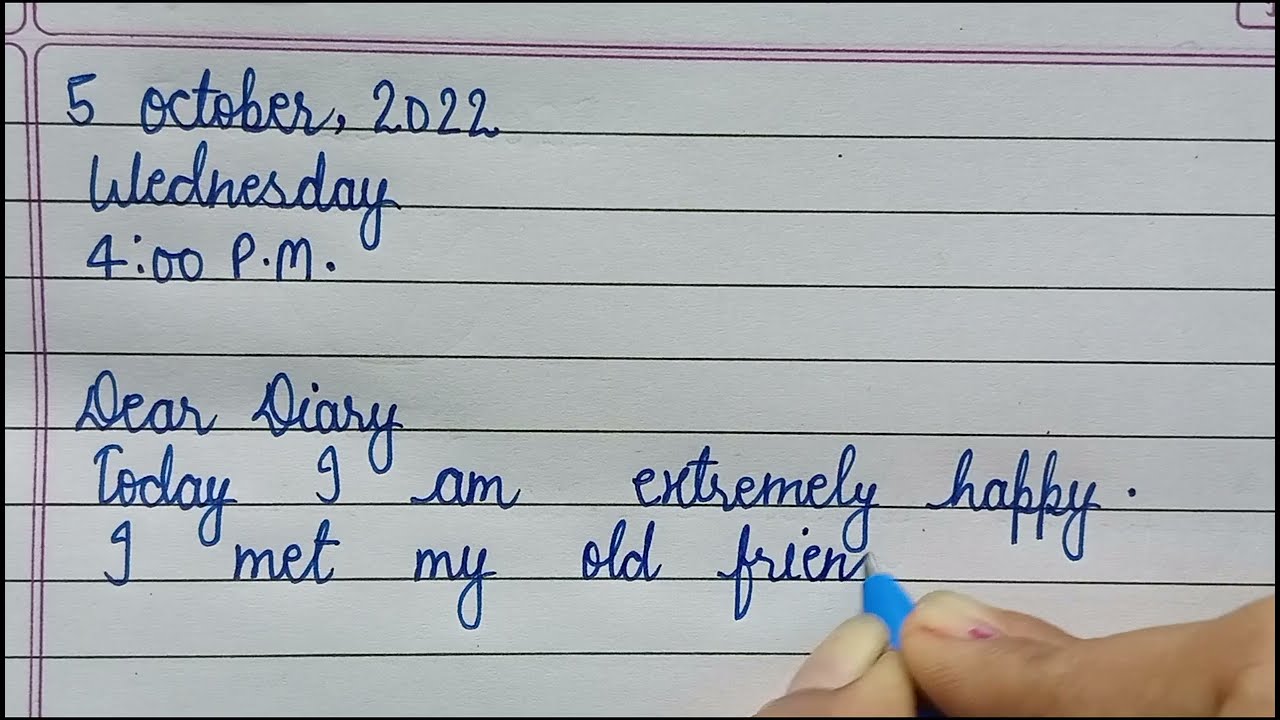 5 october, 2022
Wednesday
4:00 P.M.
Dear Diary
Today I am extremely happy.
I met my old frien